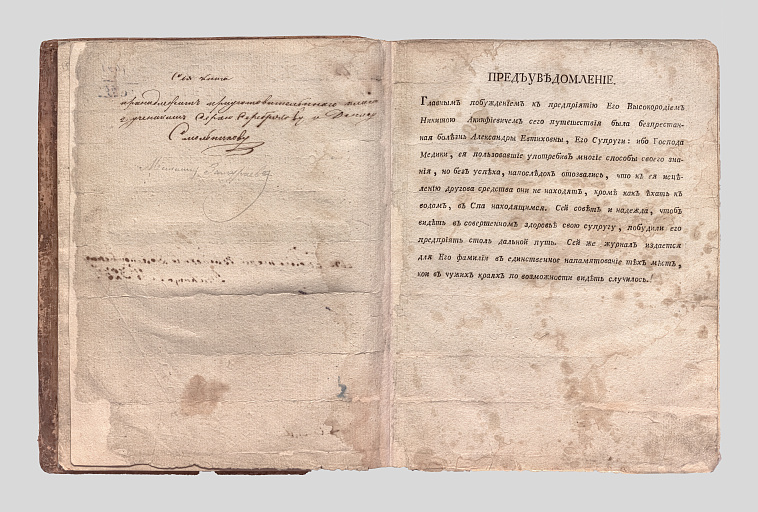 Сія книга
принадлежитъ приуготовительнаго класса
ученикамъ
Смольникову
ПРЕДЪУВѢДОМЛЕНІЕ.
Главнымъ побужденіемъ къ предпріятію Его Высокородіемъ
Никитою Акинфіевичемъ сего путешествія была безпрестан-
ная болѣзнь Александры Евтиховны, Его Супруги: ибо Господа
Медики, ея пользовавшіе употребивъ многіе способы своего зна-
нія, но безъ успѣха, напослѣдокъ отозвались, что къ ея исцѣ-
ленію другова средства они не находятъ, кромѣ какъ ѣхать къ
водамъ, въ Спа находящимся. Сей совѣтъ и надежда, чтобъ
видѣть въ совершенномъ здоровьѣ свою супругу, побудили его
предпріять столь дальной путь. Сей же журналъ издается
для Его фамиліи въ единственное напамятованіе тѣхъ мѣстъ,
кои въ чужихъ краяхъ по возможности видѣть случилось.